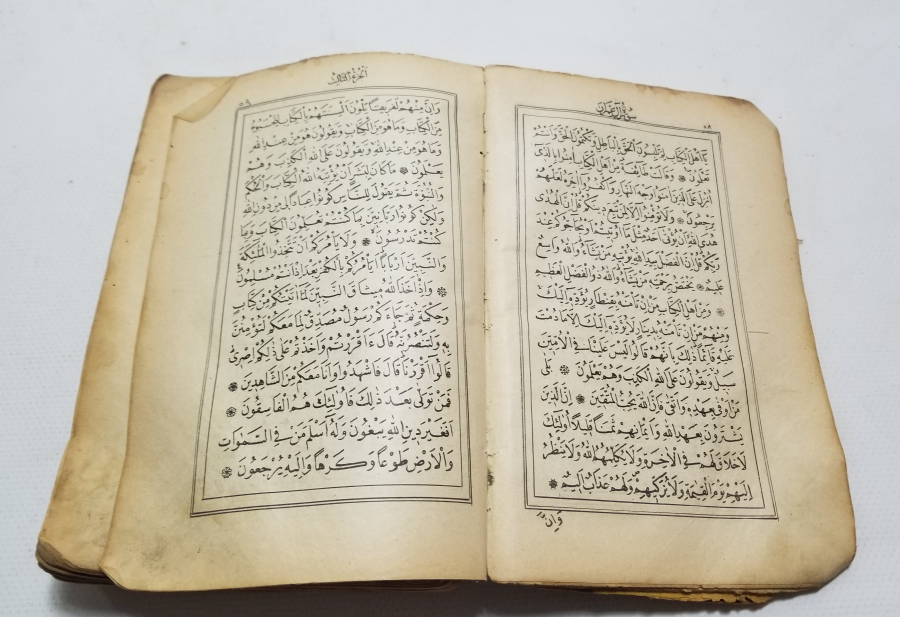 سُورَةُ اٰلِ عِمْرَانَ
٥٨
يَٓا اَهْلَ الْكِتَابِ لِمَ تَلْبِسُونَ الْحَقَّ بِالْبَاطِلِ وَتَكْتُمُونَ الْحَقَّ وَاَنْتُمْ
تَعْلَمُونَ ۞ وَقَالَتْ طَٓائِفَةٌ مِنْ اَهْلِ الْكِتَابِ اٰمِنُوا بِالَّذِٓى
اُنْزِلَ عَلَى الَّذِينَ اٰمَنُوا وَجْهَ النَّهَارِ وَاكْفُرُٓوا اٰخِرَهُ لَعَلَّهُمْ
يَرْجِعُونَ ۞ وَلَا تُؤْمِنُٓوا اِلَّا لِمَنْ تَبِعَ دِينَكُمْ قُلْ اِنَّ الْهُدٰى
هُدَى اللّٰهِ اَنْ يُؤْتٰٓى اَحَدٌ مِثْلَ مَٓا اُوتِيتُمْ اَوْ يُحَٓاجُّوكُمْ عِنْدَ
رَبِّكُمْ قُلْ اِنَّ الْفَضْلَ بِيَدِ اللّٰهِ يُؤْتِيهِ مَنْ يَشَٓاءُ وَاللّٰهُ وَاسِعٌ
عَلِيمٌ ۞ يَخْتَصُّ بِرَحْمَتِهِ مَنْ يَشَٓاءُ وَاللّٰهُ ذُو الْفَضْلِ الْعَظِيمِ
۞ وَمِنْ اَهْلِ الْكِتَابِ مَنْ اِنْ تَأْمَنْهُ بِقِنْطَارٍ يُؤَدِّهِٓ اِلَيْكَ
وَمِنْهُمْ مَنْ اِنْ تَأْمَنْهُ بِدِينَارٍ لَا يُؤَدِّهِٓ اِلَيْكَ اِلَّا مَا دُمْتَ
عَلَيْهِ قَٓائِمًا ذٰلِكَ بِاَنَّهُمْ قَالُوا لَيْسَ عَلَيْنَا فِى الْاُمِّيِّنَ
سَبِيلٌ وَيَقُولُونَ عَلَى اللّٰهِ الْكَذِبَ وَهُمْ يَعْلَمُونَ ۞ بَلٰى
مَنْ اَوْفٰى بِعَهْدِهِ وَاتَّقٰى فَاِنَّ اللّٰهَ يُحِبُّ الْمُتَّقِينَ ۞ اِنَّ الَّذِينَ
يَشْتَرُونَ بِعَهْدِ اللّٰهِ وَاَيْمَانِهِمْ ثَمَنًا قَلِيلًا اُولٰٓئِكَ
لَا خَلَاقَ لَهُمْ فِى الْاٰخِرَةِ وَلَا يُكَلِّمُهُمُ اللّٰهُ وَلَا يَنْظُرُ
اِلَيْهِمْ يَوْمَ الْقِيٰمَةِ وَلَا يُزَكِّيهِمْ وَلَهُمْ عَذَابٌ اَلِيمٌ ۞
وَاِنَّ
اَلْجُزْءُ الثَّالِثُ
٥٩
وَاِنَّ مِنْهُمْ لَفَرِيقًا يَلْوُنَ اَلْسِنَتَهُمْ بِالْكِتَابِ لِتَحْسَبُوهُ
مِنَ الْكِتَابِ وَمَا هُوَ مِنَ الْكِتَابِ وَيَقُولُونَ هُوَ مِنْ عِنْدِ اللّٰهِ
وَمَا هُوَ مِنْ عِنْدِ اللّٰهِ وَيَقُولُونَ عَلَى اللّٰهِ الْكَذِبَ وَهُمْ
يَعْلَمُونَ ۞ مَا كَانَ لِبَشَرٍ اَنْ يُؤْتِيَهُ اللّٰهُ الْكِتَابَ وَالْحُكْمَ
وَالنُّبُوَّةَ ثُمَّ يَقُولَ لِلنَّاسِ كُونُوا عِبَادًا لِى مِنْ دُونِ اللّٰهِ
وَلٰكِنْ كُونُوا رَبَّانِيِّنَ بِمَا كُنْتُمْ تُعَلِّمُونَ الْكِتَابَ وَبِمَا
كُنْتُمْ تَدْرُسُونَ ۞ وَلَا يَأْمُرَكُمْ اَنْ تَتَّخِذُوا الْمَلٰٓئِكَةَ
وَالنَّبِيِّنَ اَرْبَابًا اَيَأْمُرُكُمْ بِالْكُفْرِ بَعْدَ اِذْ اَنْتُمْ مُسْلِمُونَ
۞ وَاِذْ اَخَذَ اللّٰهُ مِيثَاقَ النَّبِيِّنَ لَمَٓا اٰتَيْتُكُمْ مِنْ كِتَابٍ
وَحِكْمَةٍ ثُمَّ جَٓاءَكُمْ رَسُولٌ مُصَدِّقٌ لِمَا مَعَكُمْ لَتُؤْمِنُنَّ
بِهِ وَلَتَنْصُرُنَّهُ قَالَ ءَاَقْرَرْتُمْ وَاَخَذْتُمْ عَلٰى ذٰلِكُمْ اِصْرِى
قَالُٓوا اَقْرَرْنَا قَالَ فَاشْهَدُوا وَاَنَا مَعَكُمْ مِنَ الشَّاهِدِينَ ۞
فَمَنْ تَوَلّٰى بَعْدَ ذٰلِكَ فَاُولٰٓئِكَ هُمُ الْفَاسِقُونَ ۞
اَفَغَيْرَ دِينِ اللّٰهِ يَبْغُونَ وَلَهُٓ اَسْلَمَ مَنْ فِى السَّمٰوَاتِ
وَالْاَرْضِ طَوْعًا وَكَرْهًا وَاِلَيْهِ يُرْجَعُونَ ۞